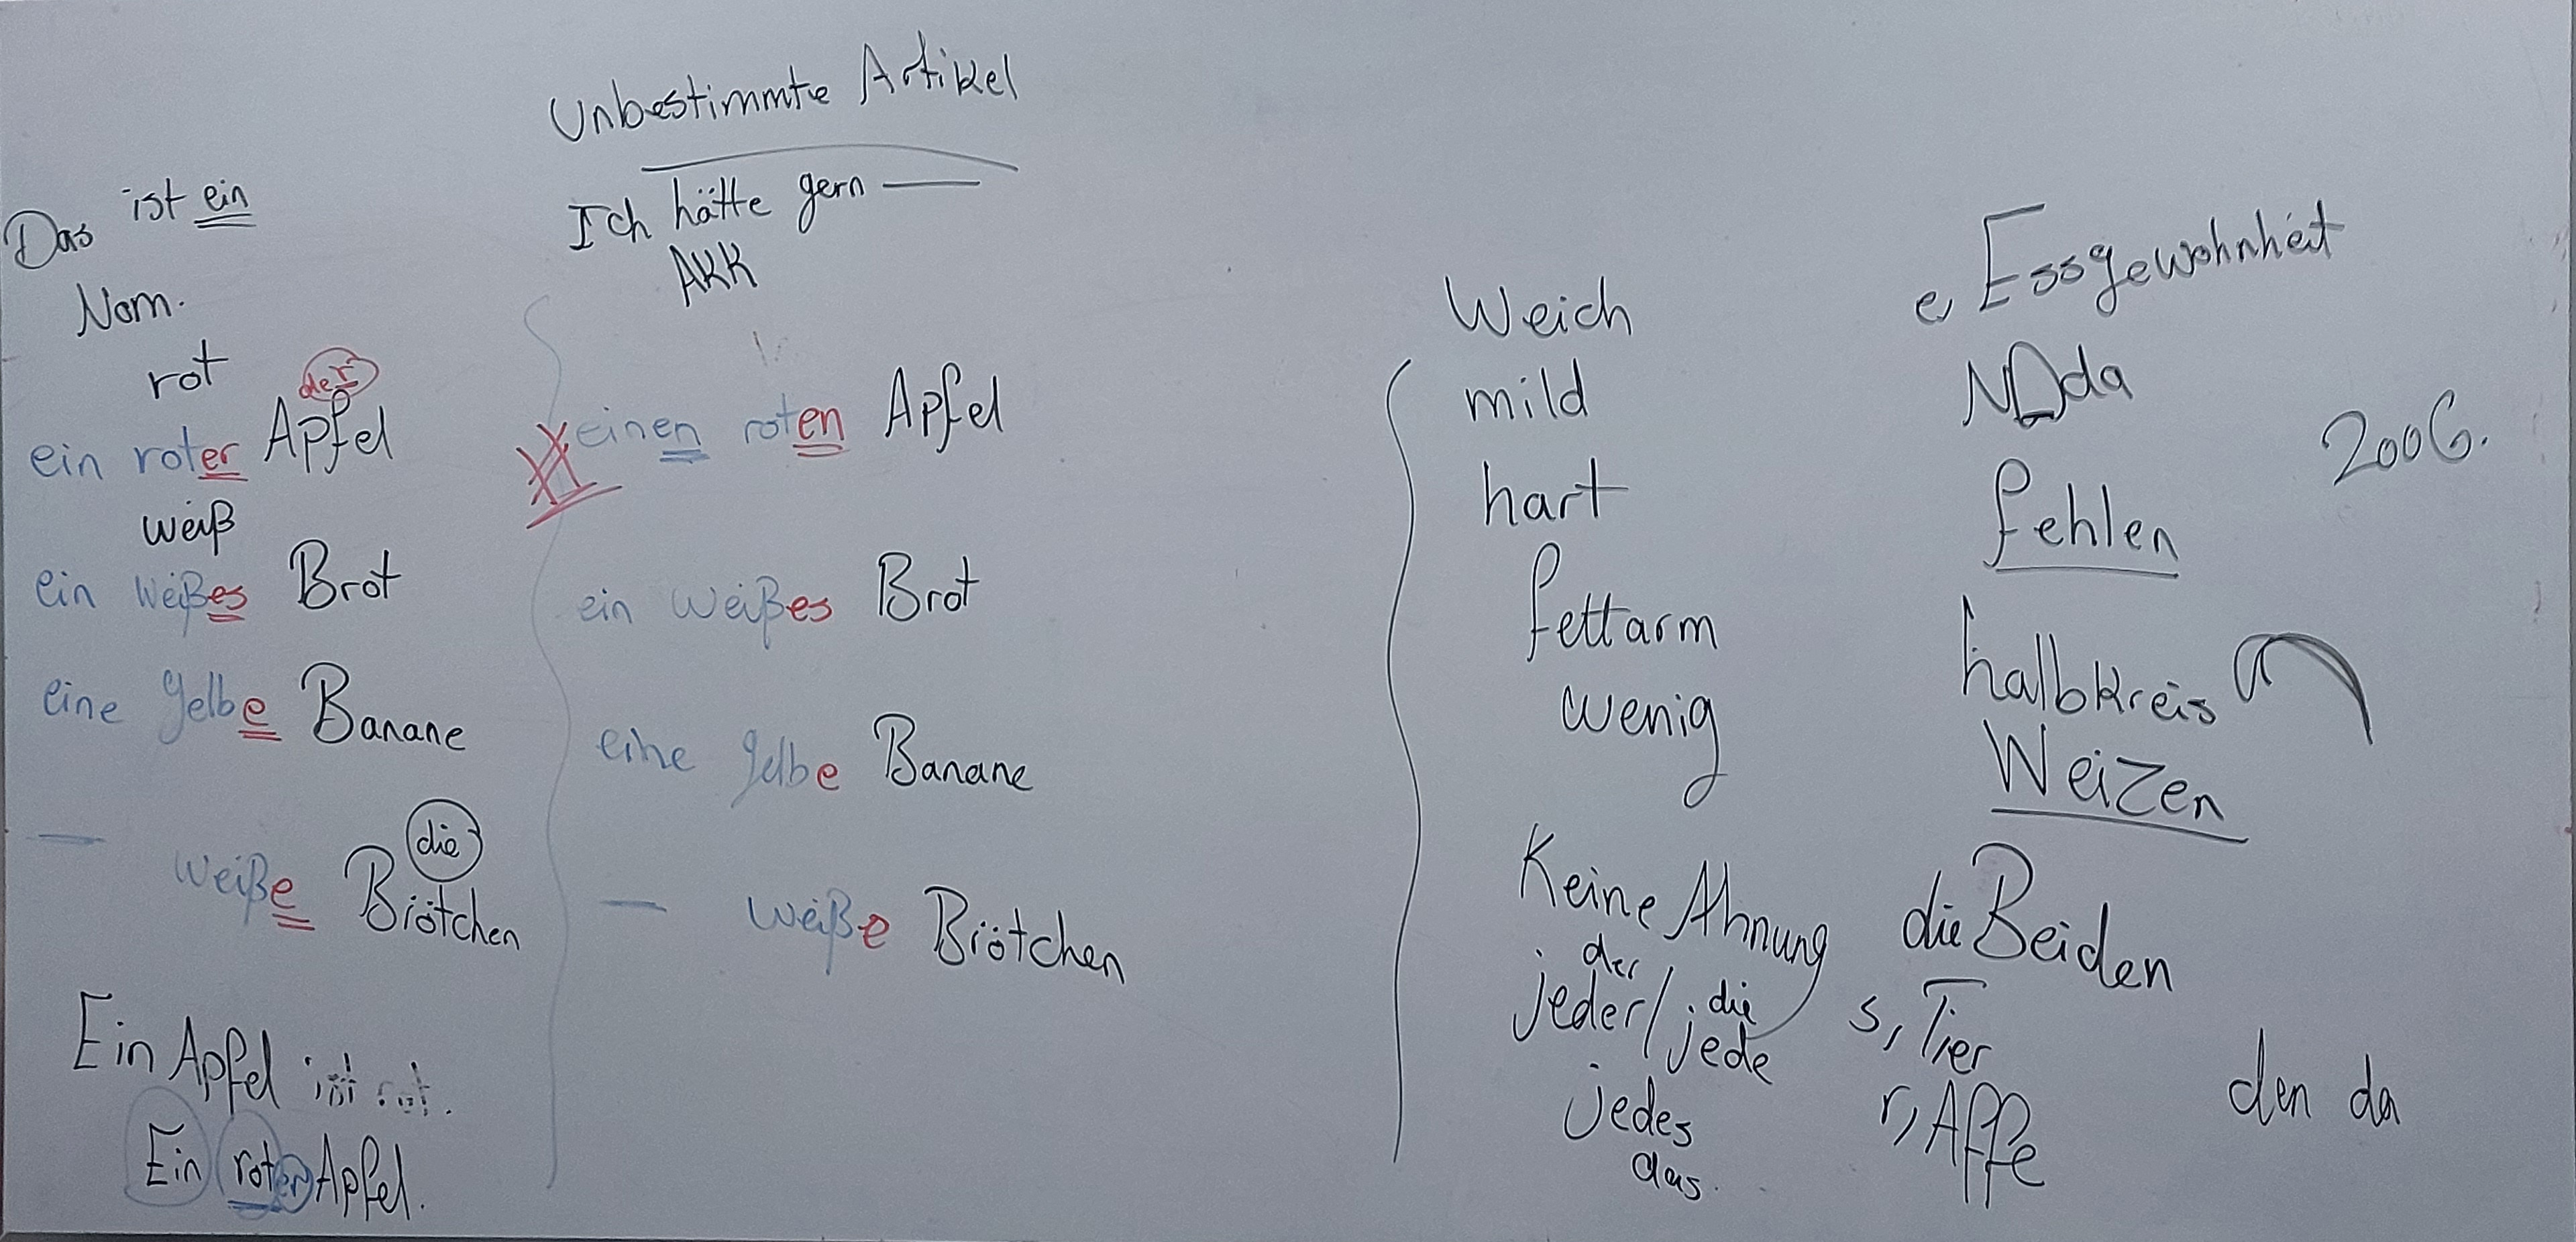 Unbestimmte Artikel
Das ist ein
Nom.
rot
der
ein roter Apfel
weiß
ein weißes Brot
eine gelbe Banane
die
— weiße Brötchen
Ein Apfel ist rot.
Ein roter Apfel.
Ich hätte gern —
AKK
einen roten Apfel
ein weißes Brot
eine gelbe Banane
— weiße Brötchen
Weich
mild
hart
fettarm
wenig
Keine Ahnung
der die
jeder/jede
jedes
das.
e, Essgewohnheit
da
200G.
fehlen
halbkreis
Weizen
die Beiden
s, Tier
r, Affe
den da